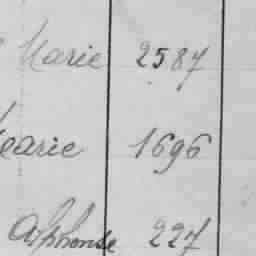 Marie 2587
Marie 1696
Alphonse 227